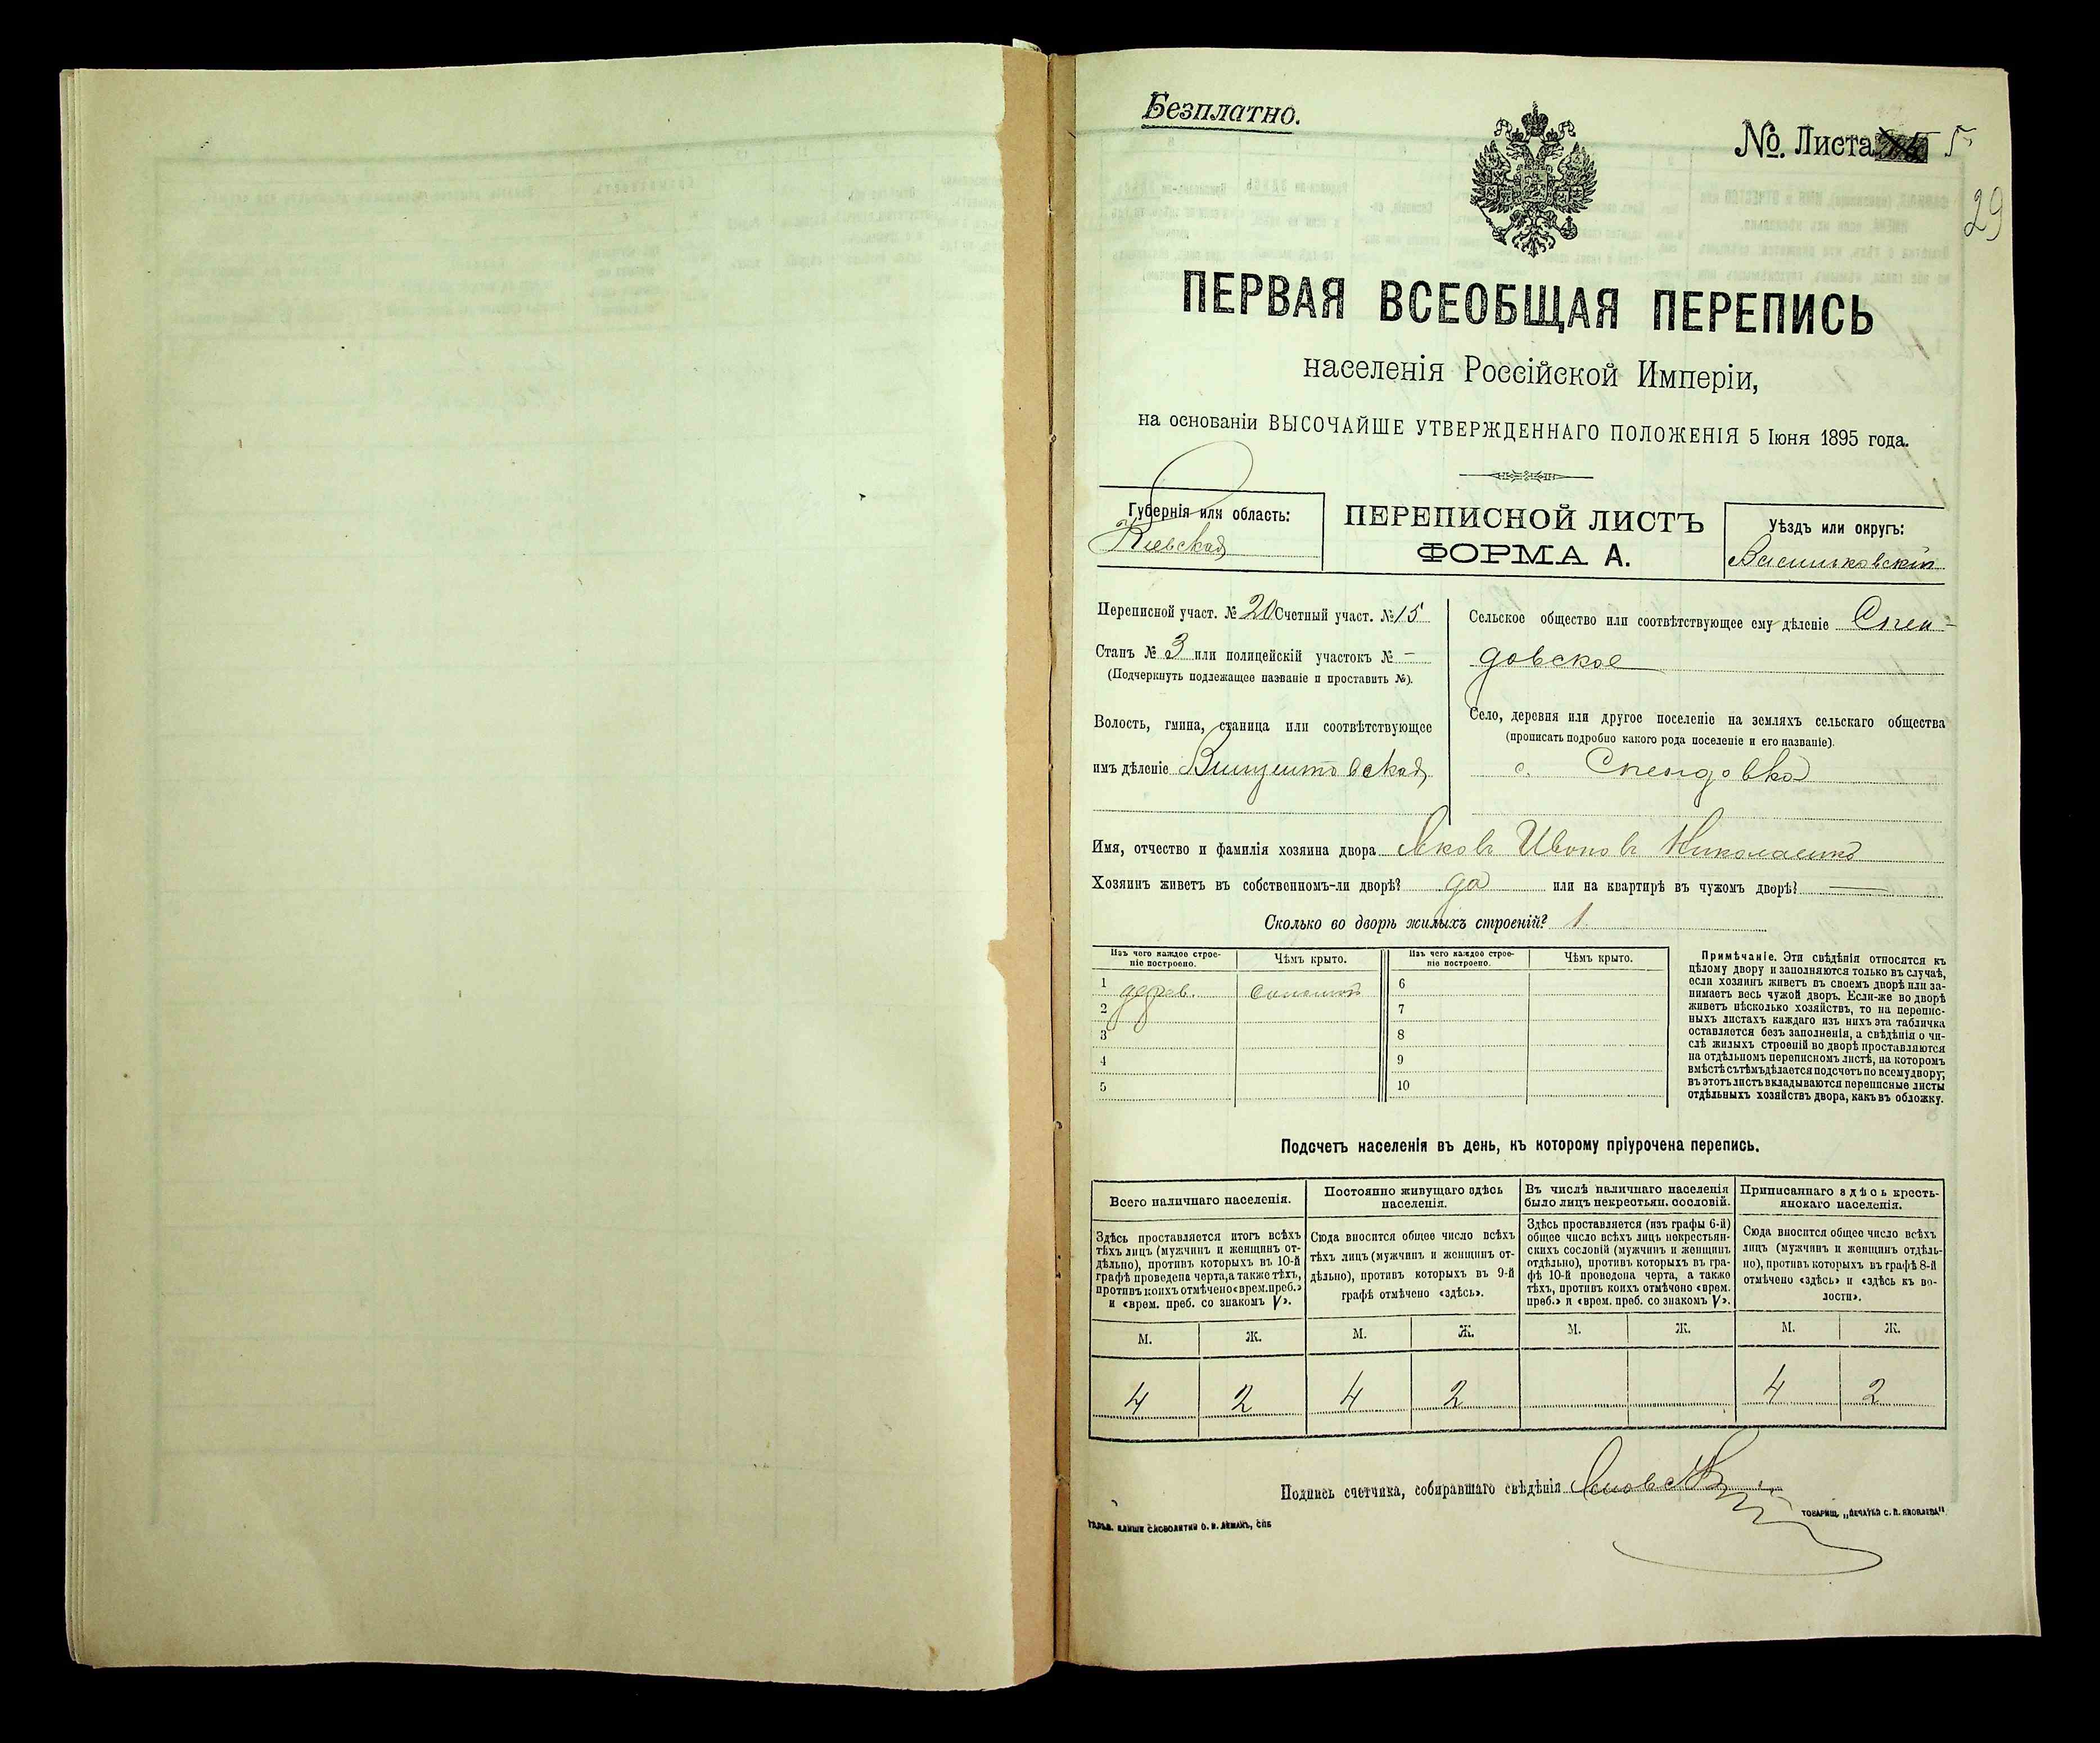 Безплатно.
№. Листа 5
29
ПЕРВАЯ ВСЕОБЩАЯ ПЕРЕПИСЬ
населенія Россійской Имперіи,
на основаніи ВЫСОЧАЙШЕ УТВЕРЖДЕННАГО ПОЛОЖЕНІЯ 5 Іюня 1895 года.
Губернія или область:
Кіевская
ПЕРЕПИСНОЙ ЛИСТЪ
ФОРМА А.
Уѣздъ или округъ:
Васильковскій
Переписной участ. № 20 Счетный участ. № 15
Станъ № 3 или полицейскій участокъ № –
(Подчеркнуть подлежащее названіе и проставить №).
Волость, гмина, станица или соотвѣтствующее
имъ дѣленіе Винцентовская
Сельское общество или соотвѣтствующее ему дѣленіе Спен-
довское
Село, деревня или другое поселеніе на земляхъ сельскаго общества
(прописать подробно какого рода поселеніе и его названіе).
с. Спендовка
Имя, отчество и фамилія хозяина двора Яковъ Ивановъ Николаенко
Хозяинъ живетъ въ собственномъ-ли дворѣ? да или на квартирѣ въ чужомъ дворѣ? —
Сколько во дворѣ жилыхъ строеній? 1.
Изъ чего каждое строе-
ніе построено.
Чѣмъ крыто.
Изъ чего каждое строе-
ніе построено.
Чѣмъ крыто.
1 дерев. соломой 6
2 7
3 8
4 9
5 10
Примѣчаніе. Эти свѣдѣнія относятся къ
цѣлому двору и заполняются только въ случаѣ,
если хозяинъ живетъ въ своемъ дворѣ или за-
нимаетъ весь чужой дворъ. Если-же во дворѣ
живетъ нѣсколько хозяйствъ, то на перепис-
ныхъ листахъ каждаго изъ нихъ эта табличка
оставляется безъ заполненія, а свѣдѣнія о чи-
слѣ жилыхъ строеній во дворѣ проставляются
на отдѣльномъ переписномъ листѣ, на которомъ
вмѣстѣ съ тѣмъ дѣлается подсчетъ по всему двору;
въ этотъ листъ вкладываются переписные листы
отдѣльныхъ хозяйствъ двора, какъ въ обложку.
Подсчетъ населенія въ день, къ которому пріурочена перепись.
Всего наличнаго населенія.
Здѣсь проставляется итогъ всѣхъ
тѣхъ лицъ (мужчинъ и женщинъ от-
дѣльно), противъ которыхъ въ 10-й
графѣ проведена черта, а также тѣхъ,
противъ коихъ отмѣчено «врем. преб.»
и «врем. преб. со знакомъ V».
Постоянно живущаго здѣсь
населенія.
Сюда вносится общее число всѣхъ
тѣхъ лицъ (мужчинъ и женщинъ от-
дѣльно), противъ которыхъ въ 9-й
графѣ отмѣчено «здѣсь».
Въ числѣ наличнаго населенія
было лицъ некрестьян. сословій.
Здѣсь проставляется (изъ графы 6-й)
общее число всѣхъ лицъ некрестьян-
скихъ сословій (мужчинъ и женщинъ
отдѣльно), противъ которыхъ въ гра-
фѣ 10-й проведена черта, а также
тѣхъ, противъ коихъ отмѣчено «врем.
преб.» и «врем. преб. со знакомъ V».
Приписаннаго здѣсь кресть-
янскаго населенія.
Сюда вносится общее число всѣхъ
лицъ (мужчинъ и женщинъ отдѣль-
но), противъ которыхъ въ графѣ 8-й
отмѣчено «здѣсь» и «здѣсь къ во-
лости».
М. Ж. М. Ж. М. Ж. М. Ж.
4 2 4 2 4 2
Подпись счетчика, собиравшаго свѣдѣнія
ГАЛЬВ. КЛИШЕ СЛОВОЛИТНИ О. И. ЛЕМАНЪ, СПБ
ТОВАРИЩ. „ПЕЧАТНЯ С. П. ЯКОВЛЕВА".